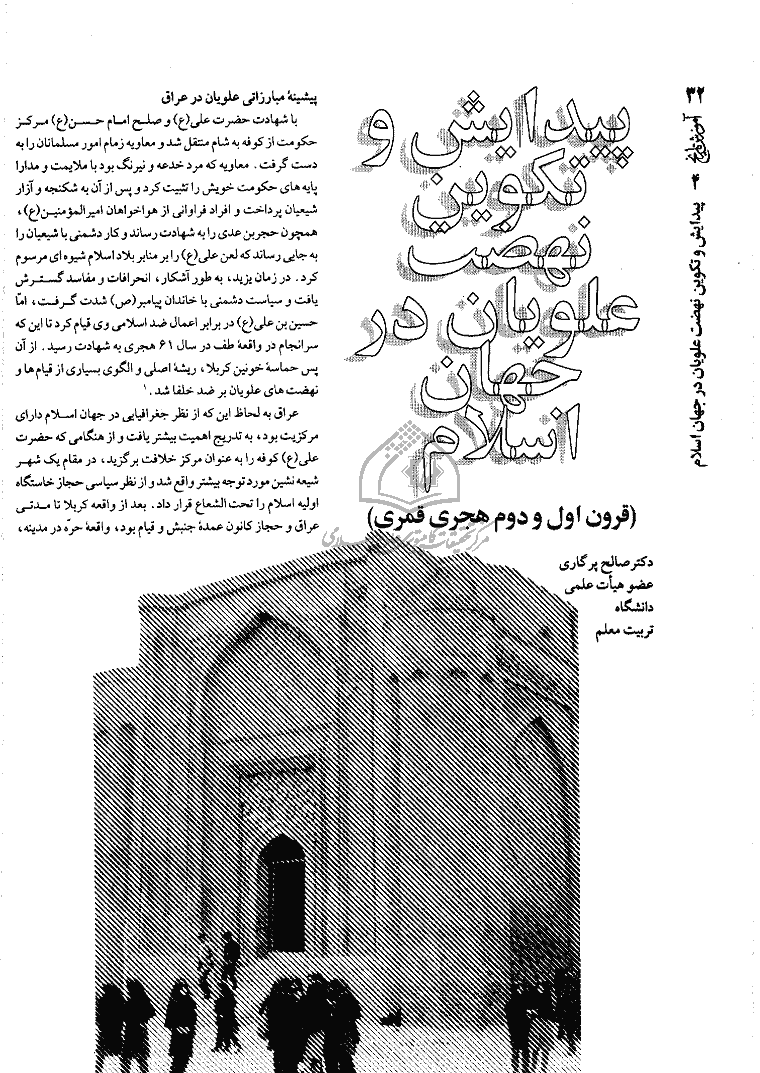 ۳۲
آموزش تاریخ
پیدایش و تکوین نهضت علویان در جهان اسلام
پیدایش و
تکوین
نهضت
علویان در
جهان
اسلام
(قرون اول و دوم هجری قمری)
دکتر صالح پرگاری
عضو هیأت علمی
دانشگاه
تربیت معلم
پیشینهٔ مبارزاتی علویان در عراق
با شهادت حضرت علی(ع) و صلح امام حسن(ع) مرکز
حکومت از کوفه به شام منتقل شد و معاویه زمام امور مسلمانان را به
دست گرفت. معاویه که مرد خدعه و نیرنگ بود با ملایمت و مدارا
پایه های حکومت خویش را تثبیت کرد و پس از آن به شکنجه و آزار
شیعیان پرداخت و افراد فراوانی از هواخواهان امیرالمؤمنین(ع)،
همچون حجربن عدی را به شهادت رساند و کار دشمنی با شیعیان را
به جایی رساند که لعن علی(ع) را بر منابر بلاد اسلام شیوه ای مرسوم
کرد. در زمان یزید، به طور آشکار، انحرافات و مفاسد گسترش
یافت و سیاست دشمنی با خاندان پیامبر(ص) شدت گرفت، امّا
حسین بن علی(ع) در برابر اعمال ضد اسلامی وی قیام کرد تا این که
سرانجام در واقعهٔ طف در سال ۶۱ هجری به شهادت رسید. از آن
پس حماسهٔ خونین کربلا، ریشهٔ اصلی و الگوی بسیاری از قیام ها و
نهضت های علویان بر ضد خلفا شد.۱
عراق به لحاظ این که از نظر جغرافیایی در جهان اسلام دارای
مرکزیت بود، به تدریج اهمیت بیشتر یافت و از هنگامی که حضرت
علی(ع) کوفه را به عنوان مرکز خلافت برگزید، در مقام یک شهر
شیعه نشین مورد توجه بیشتر واقع شد و از نظر سیاسی حجاز خاستگاه
اولیه اسلام را تحت الشعاع قرار داد. بعد از واقعه کربلا تا مدتی
عراق و حجاز کانون عمدهٔ جنبش و قیام بود، واقعهٔ حرّه در مدینه،